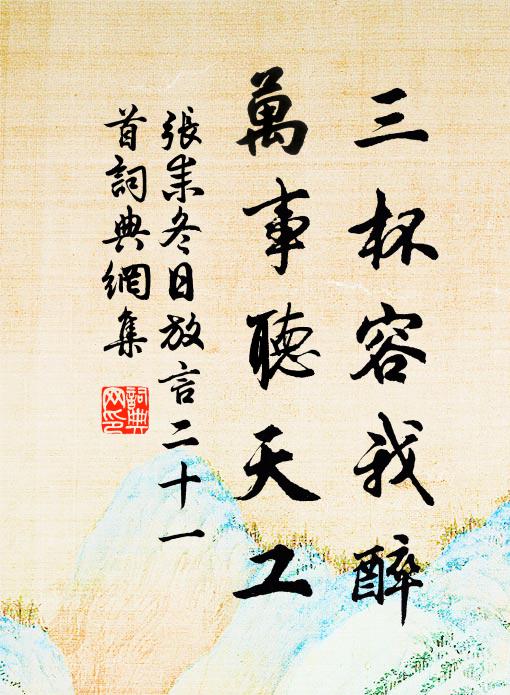 三杯容我醉
萬事聽天工
張耒冬日放言二十一
首詞典網集
詞典網印